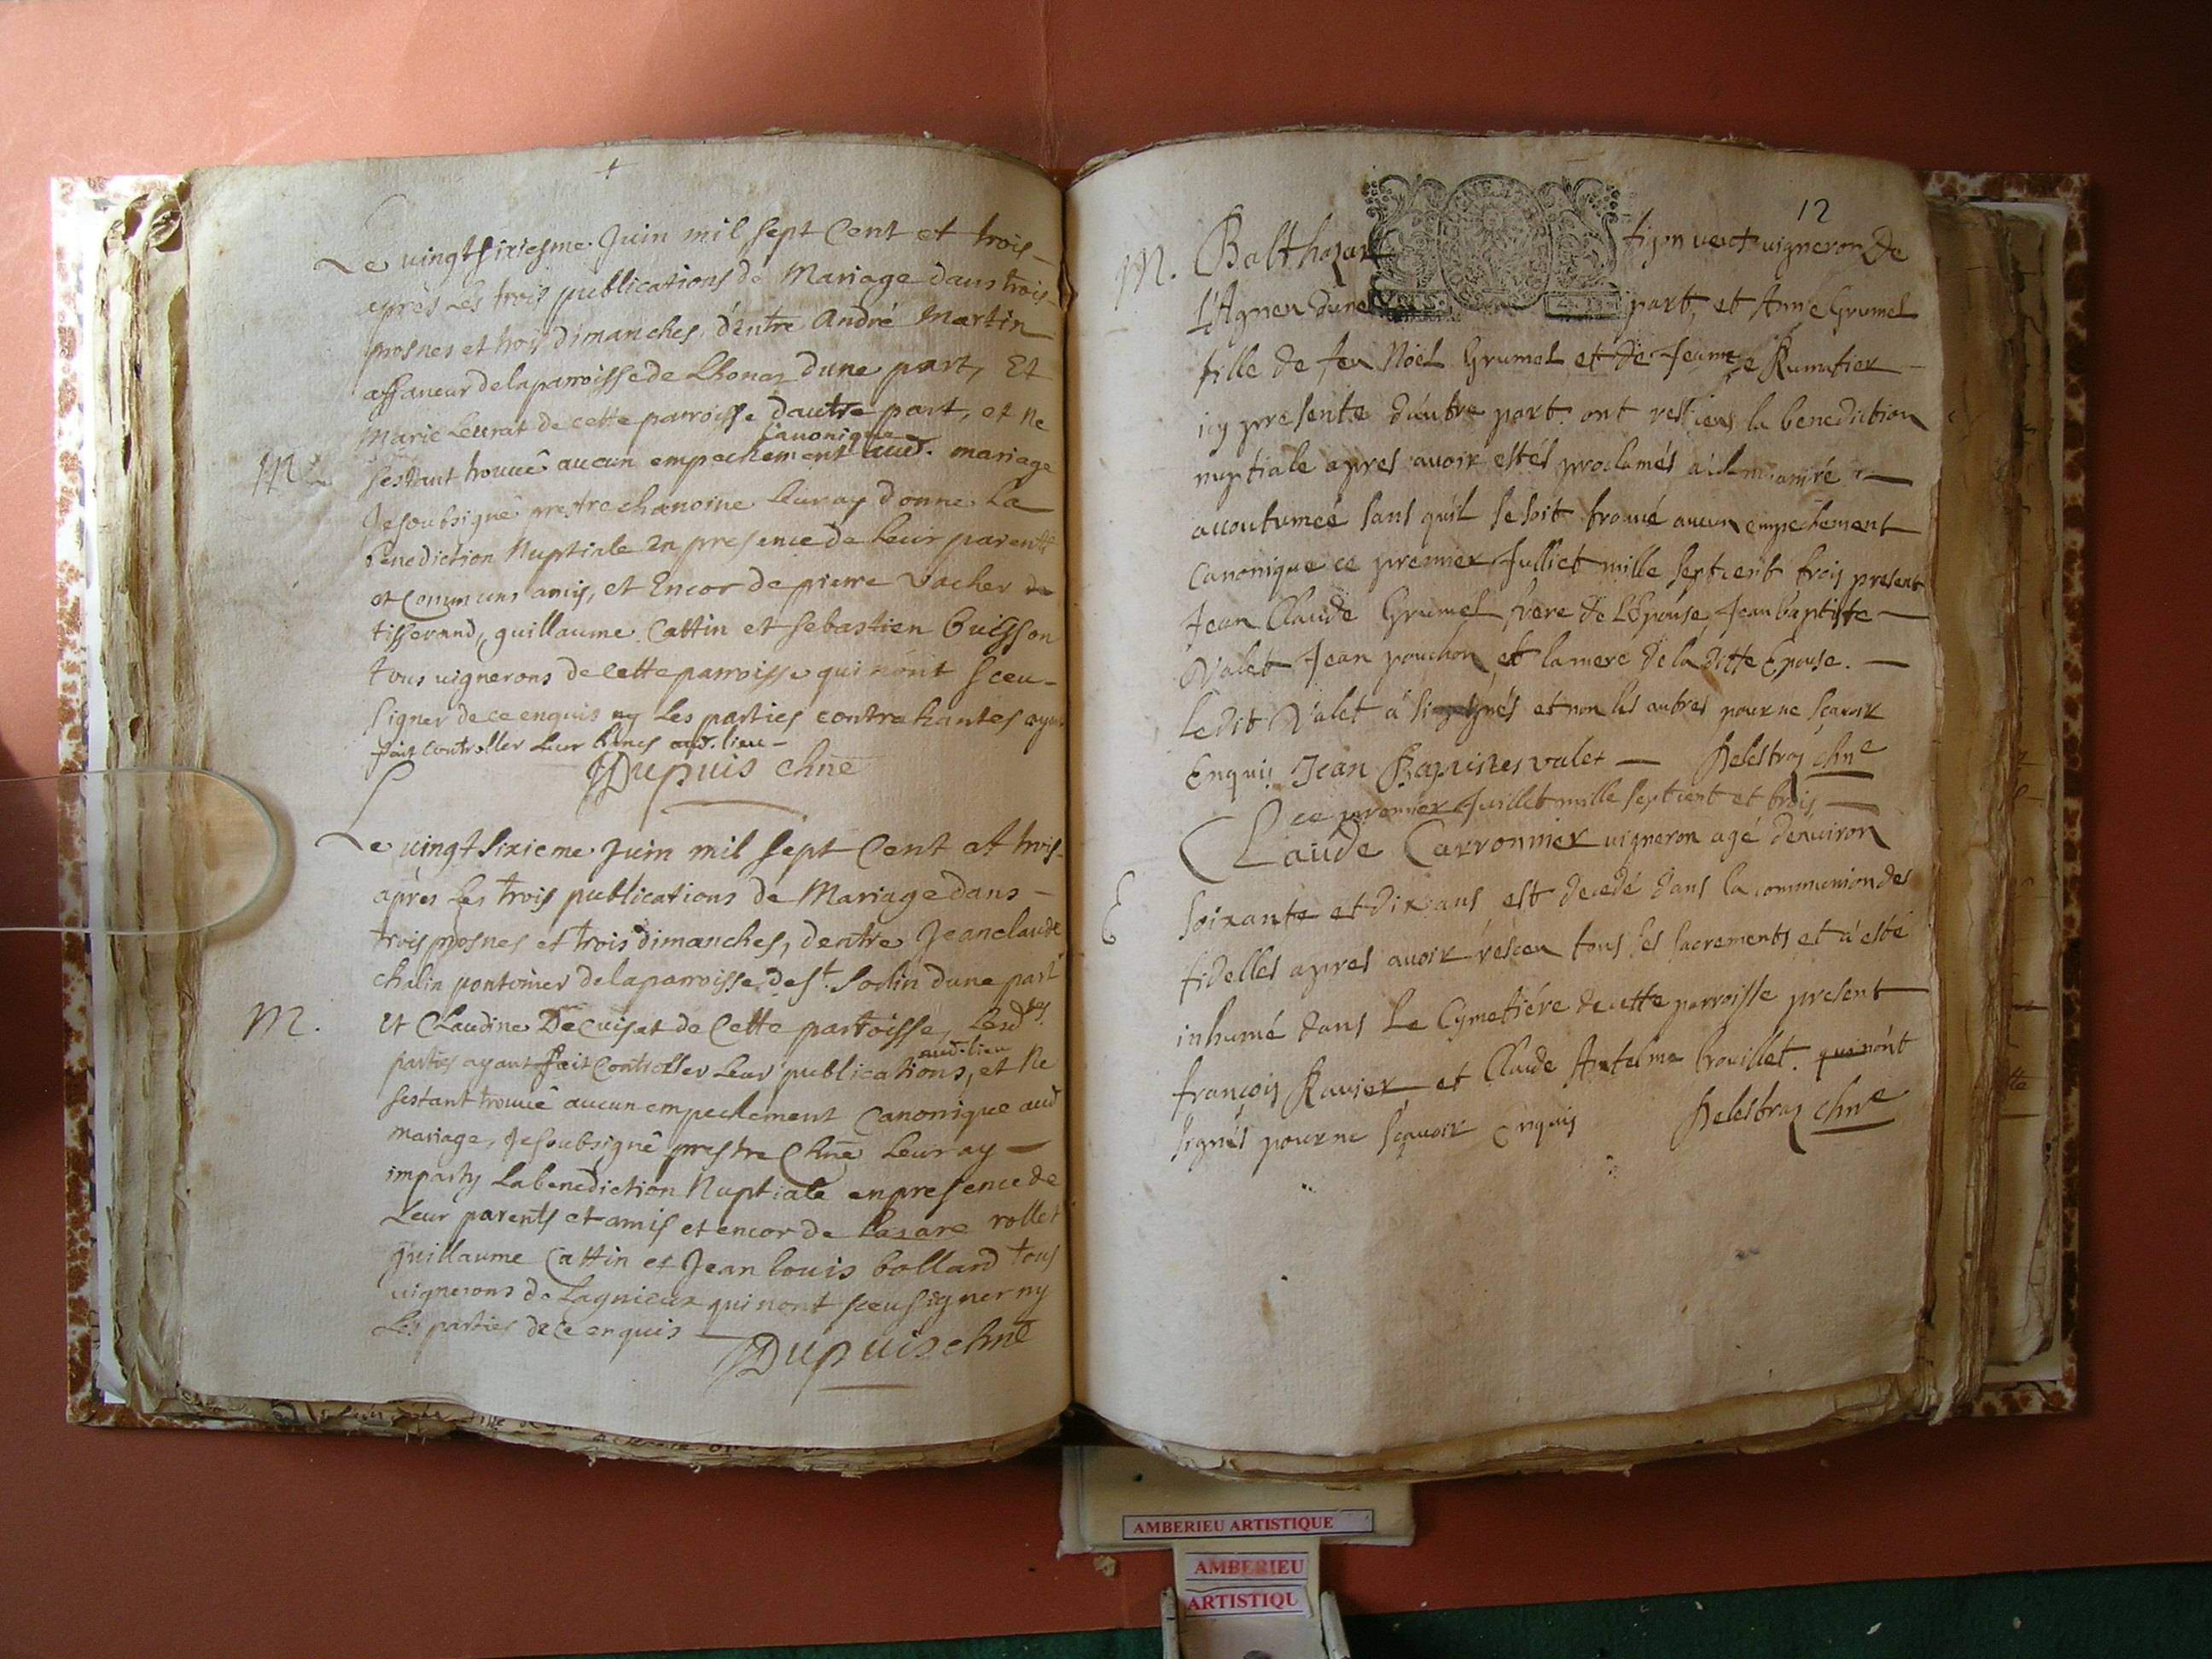 Le vingt sixiesme Juin mil sept Cent et trois
apres Les trois publications de Mariage dans trois
prosnes et trois dimanches, d'entre André Martin
affaneur de la parroisse de dune part, Et
Marie Leurat de cette parroisse d'autre part, et ne
Canonique
M. sestant trouué aucun empechement aud. mariage
Je soubsigné prestre chanoine Leur ay donné La
benediction Nuptiale En presence de Leur parents
et Communs amis, et Encor de pierre vacher
tisserand, guillaume Cattin et sebastien Buisson
tous uignerons de cette parroisse qui n'ont sceu
signer de ce enquis ny Les parties contrahantes ayant
fait controller Leur bancs aud. lieu
Dupuis chne
Le vingt sixieme Juin mil sept Cent et trois
apres Les trois publications de Mariage dans
trois prosnes et trois dimanches, d'entre Jeanclaude
chalin pontonier de la parroisse de St. Sorlin dune part
M. Et Claudine Decuisat de Cette parroisse, Lesdtes
aud. lieu
parties ayant fait Controller Leur publications, et Ne
sestant trouué aucun empechement Canonique aud
mariage, Je soubsigné prestre Chne Leur ay
imparty La benediction Nuptiale en presence de
Leur parents et amis et encor de Lazare rollet
guillaume Cattin et Jean Louis bolland tous
uignerons de Lagnieux qui n'ont sceu signer ny
Les parties de ce enquis
Dupuis chne
12
M. Balthazart uigneron De
L'Agneu dune part, et Anne Grumel
fille de feu Noël Grumel et de Jeanne Rumatier
icy presente d'autre part ont la benediction
nuptiale apres auoir estés proclamés à la maniré
accoutumée sans qu'il se soit trouué aucun empechement
Canonique ce premier Julliet mille sept cent trois present
Jean Claude Grumel frere de L'Epouse, Jean baptiste
Valet Jean pouchon et la mere de la ditte Epouse.
Ledit Valet à signés et non les autres pour ne sçauoir
Enquis Jean Baptistes valet Delestraz chne
ce premier Juillet mille sept cent et trois
Claude Carronnier uigneron agé d'enuiron
E soixante et dix ans est decedé dans la communion des
fidelles apres auoir resceu tous ses sacrements et a'esté
inhumé dans Le Cymetiére de cette parroisse present
francois Rauier et Claude Antelme brouillet. qui n'ont
signés pour ne sçauoir enquis Delestraz chne
AMBERIEU ARTISTIQUE
AMBERIEU
ARTISTIQU